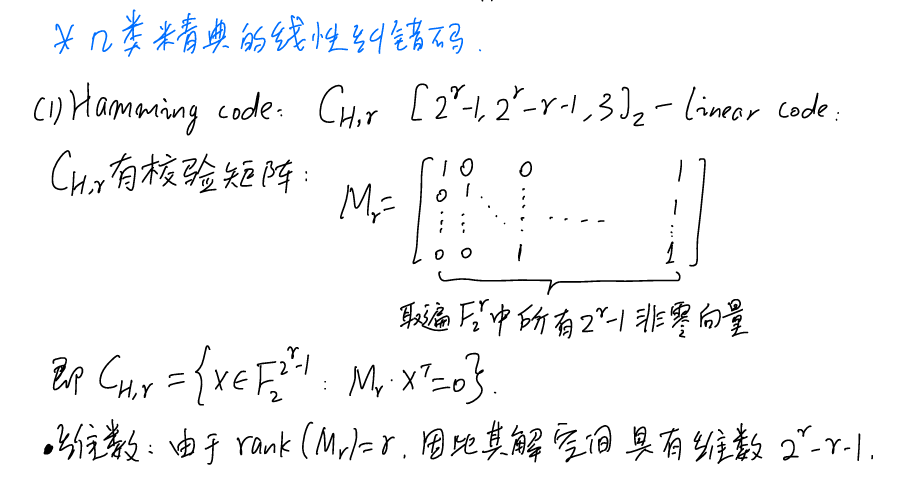 * 几类精典的线性纠错码.
(1) Hamming code: C_{H,r} [2^r-1, 2^r-r-1, 3]_2 - linear code:
C_{H,r}有校验矩阵:
M_r = [ 1 0 0 1
0 1 ⋱ ⋮ 1
⋮ ⋮ ⋱ ⋮ ---- ⋮
0 0 1 1 ]
取遍 F_2^r 中所有 2^r-1 非零向量
即 C_{H,r} = {x ∈ F_2^{2^r-1} : M_r · x^T = 0}.
• 维数: 由于 rank(M_r)=r, 因此其解空间具有维数 2^r-r-1.